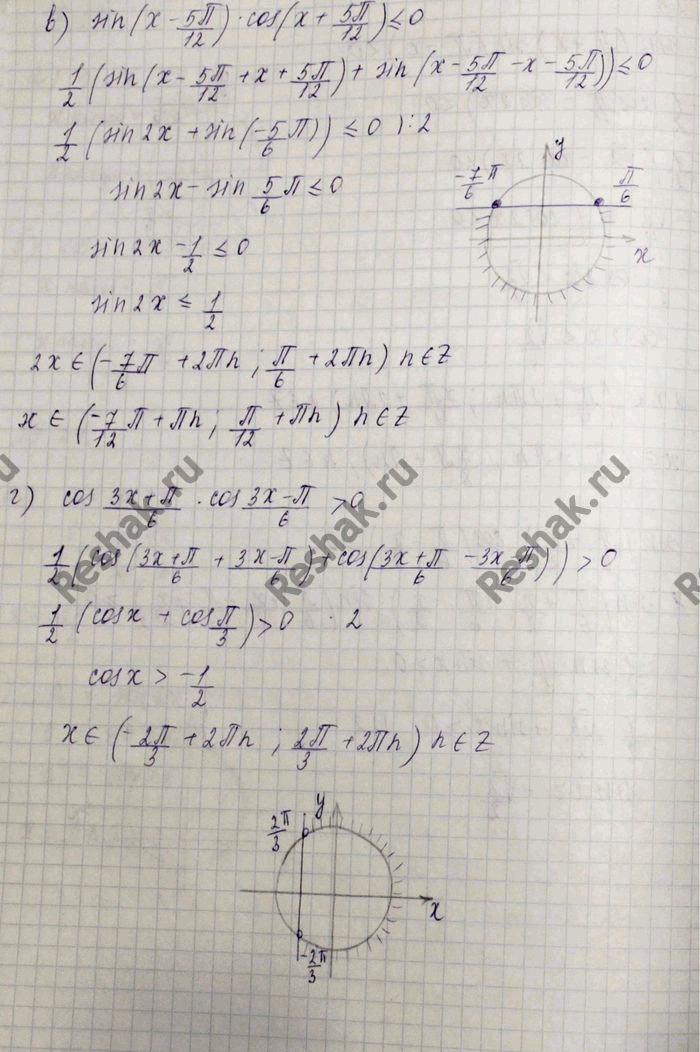 в) sin(x - 5π/12) · cos(x + 5π/12) ≤ 0
1/2 (sin(x - 5π/12 + x + 5π/12) + sin(x - 5π/12 - x - 5π/12)) ≤ 0
1/2 (sin 2x + sin(-5/6 π)) ≤ 0 ) : 2
sin 2x - sin 5/6 π ≤ 0
-7/6 π
y
π/6
x
sin 2x - 1/2 ≤ 0
sin 2x ≤ 1/2
2x ∈ (-7/6 π + 2πn ; π/6 + 2πn) n ∈ Z
x ∈ (-7/12 π + πn ; π/12 + πn) n ∈ Z
г) cos (3x+π)/6 · cos (3x-π)/6 > 0
1/2 (cos((3x+π)/6 + (3x-π)/6) + cos((3x+π)/6 - (3x-π)/6)) > 0
1/2 (cos x + cos π/3) > 0 · 2
cos x > -1/2
x ∈ (-2π/3 + 2πn ; 2π/3 + 2πn) n ∈ Z
2π/3
y
x
-2π/3
Reshak.ru
Reshak.ru
Reshak.ru